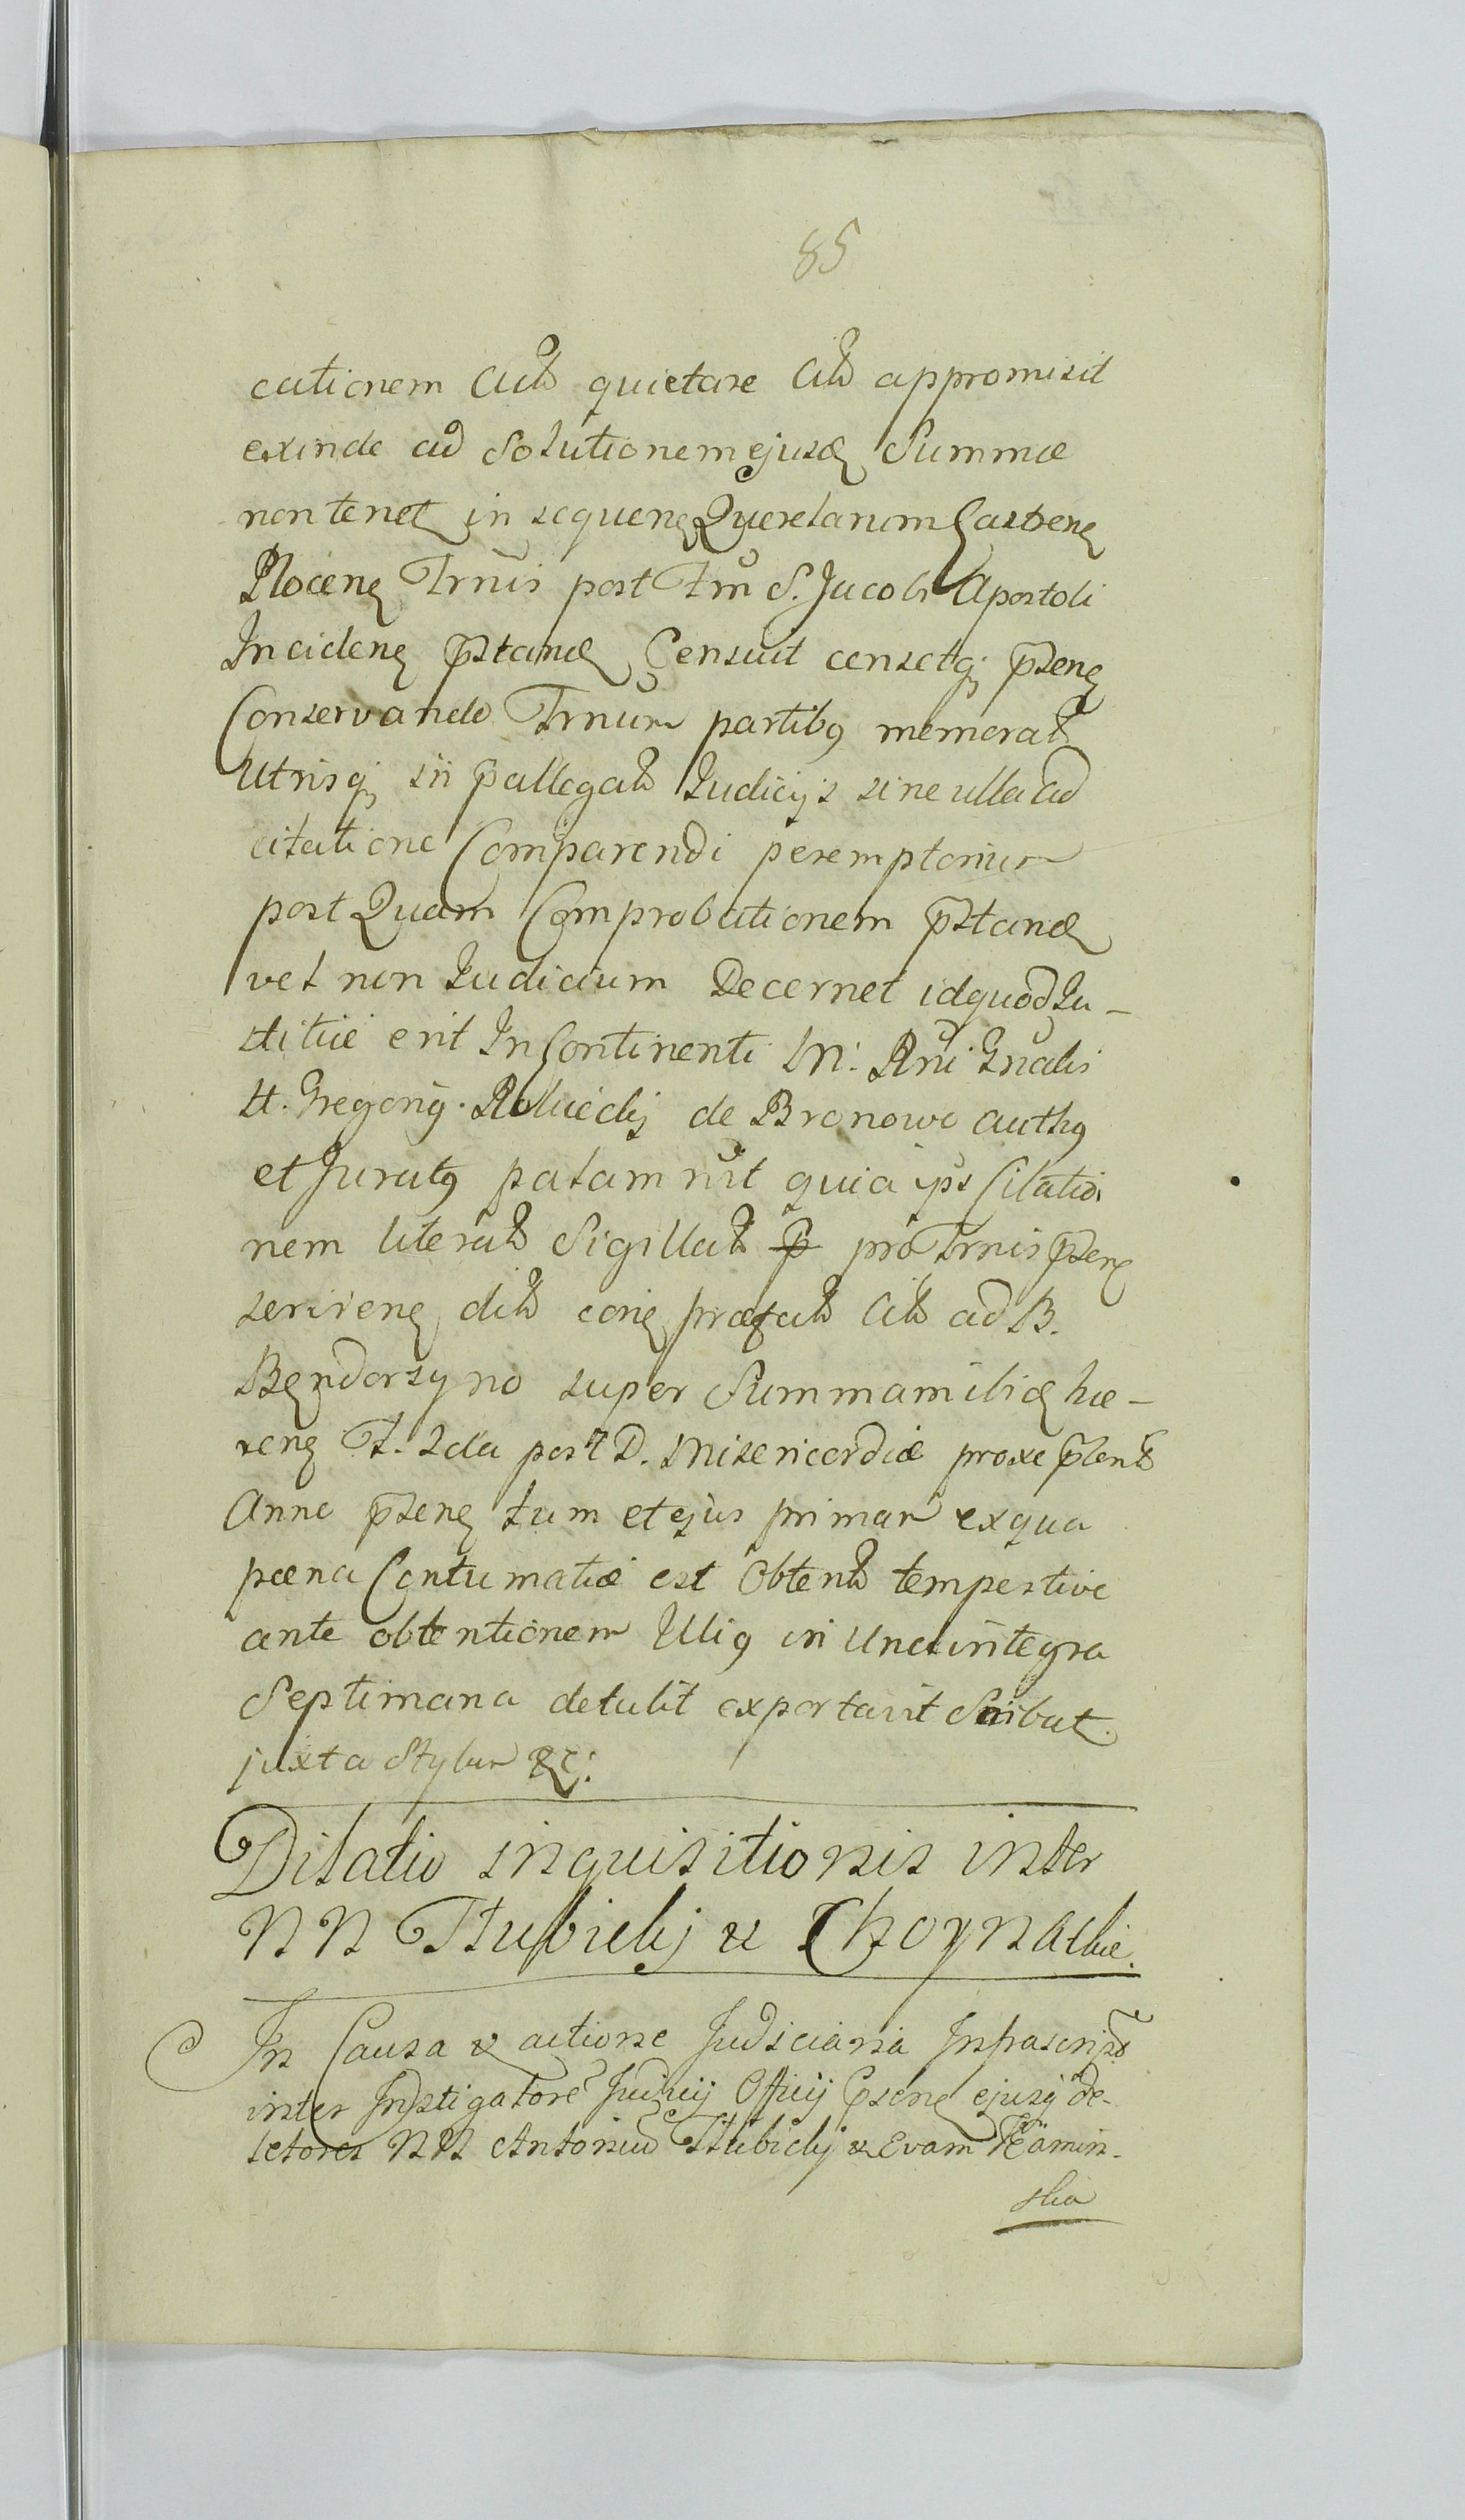 85
cationem Acth quietare Cith appromisit
exinde ad Solutionem ejusd Summæ
non tenet in sequen Querelarum Castren
Plocen Trnis post Fm S. Jacobi Apostoli
Inciden pstand Censuit censetq; psen
Conservando Trnum partibq memorath
Utrisq; in pallegath Judicijs sine ulla ad
citatione Comparendi peremptorium
post Quam Comprobationem pstand
vel non Judicium Decernet idquod Ju-
stitiæ erit In Continenti M: Rni Gnalis
H. Gregorij de Bronowo authq
et Juratq palam rūt quia ips Citatio
nem literath Sigillath p pro Trnis psen
servien dith præfath Cith ad B.
Bendorzyno super Summam ibid hæ-
ren F. 2da post D. Misericordiæ proxe pterith
Anno psen tum et ejus primar exqua
pæna Contumatiæ est Obtenth tempestive
ante obtentionem Illiq in Una integra
Septimana detulit exportavit Scribat
juxta Stylum &c:
Dilatio inquisitionis inter
NN Słubicki & Choynackie.
In Causa & actione Judiciaria Infrascript
inter Instigatore Judicij Officij psen ejusq de-
letores NN Antonium Słubicki & Evam Kamin-
ska